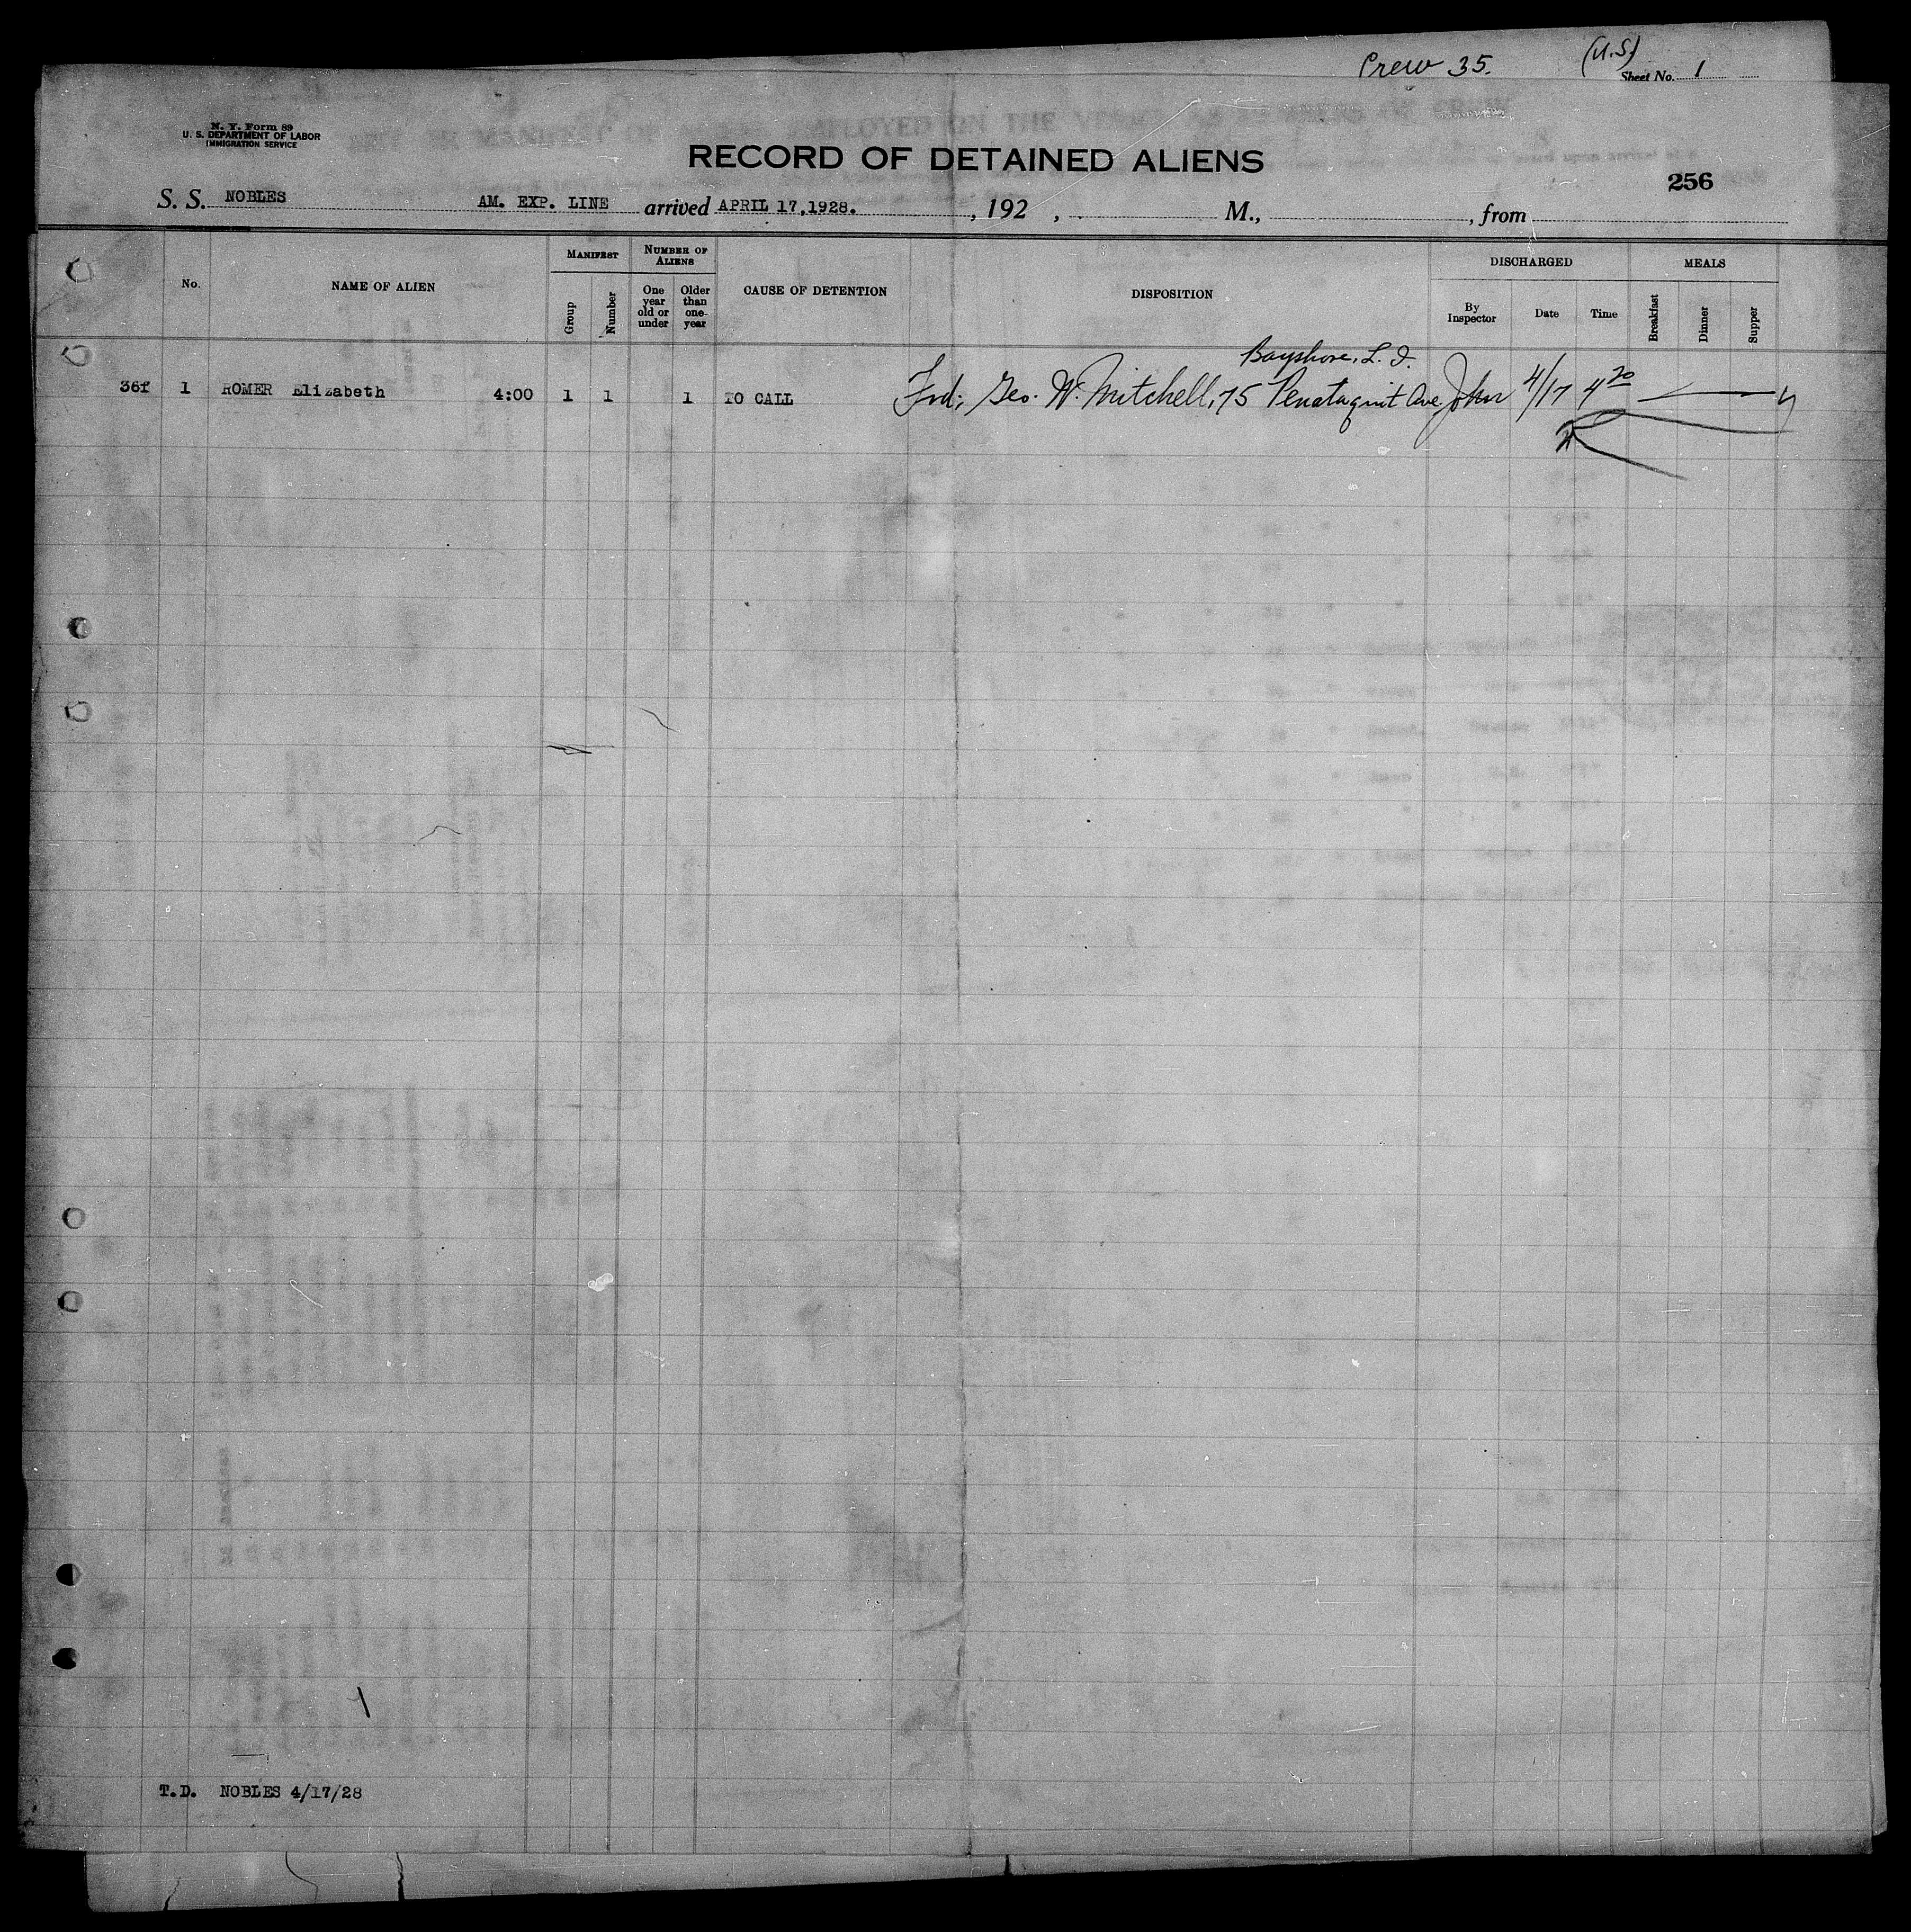 Crew 35. (U.S)
Sheet No. 1
N. Y. Form 89
U. S. DEPARTMENT OF LABOR
IMMIGRATION SERVICE
RECORD OF DETAINED ALIENS
256
S. S. NOBLES AM. EXP. LINE arrived APRIL 17,1928. , 192 , M., , from
No. NAME OF ALIEN MANIFEST Group Number NUMBER OF ALIENS One year old or under Older than one-year CAUSE OF DETENTION DISPOSITION DISCHARGED By Inspector Date Time MEALS Breakfast Dinner Supper
Bayshore, L. I.
36f 1 ROMER Elizabeth 4:00 1 1 1 TO CALL Frd; Geo. W. Mitchell, 75 Penataquit Ave John 4/17 4 20
T.D. NOBLES 4/17/28